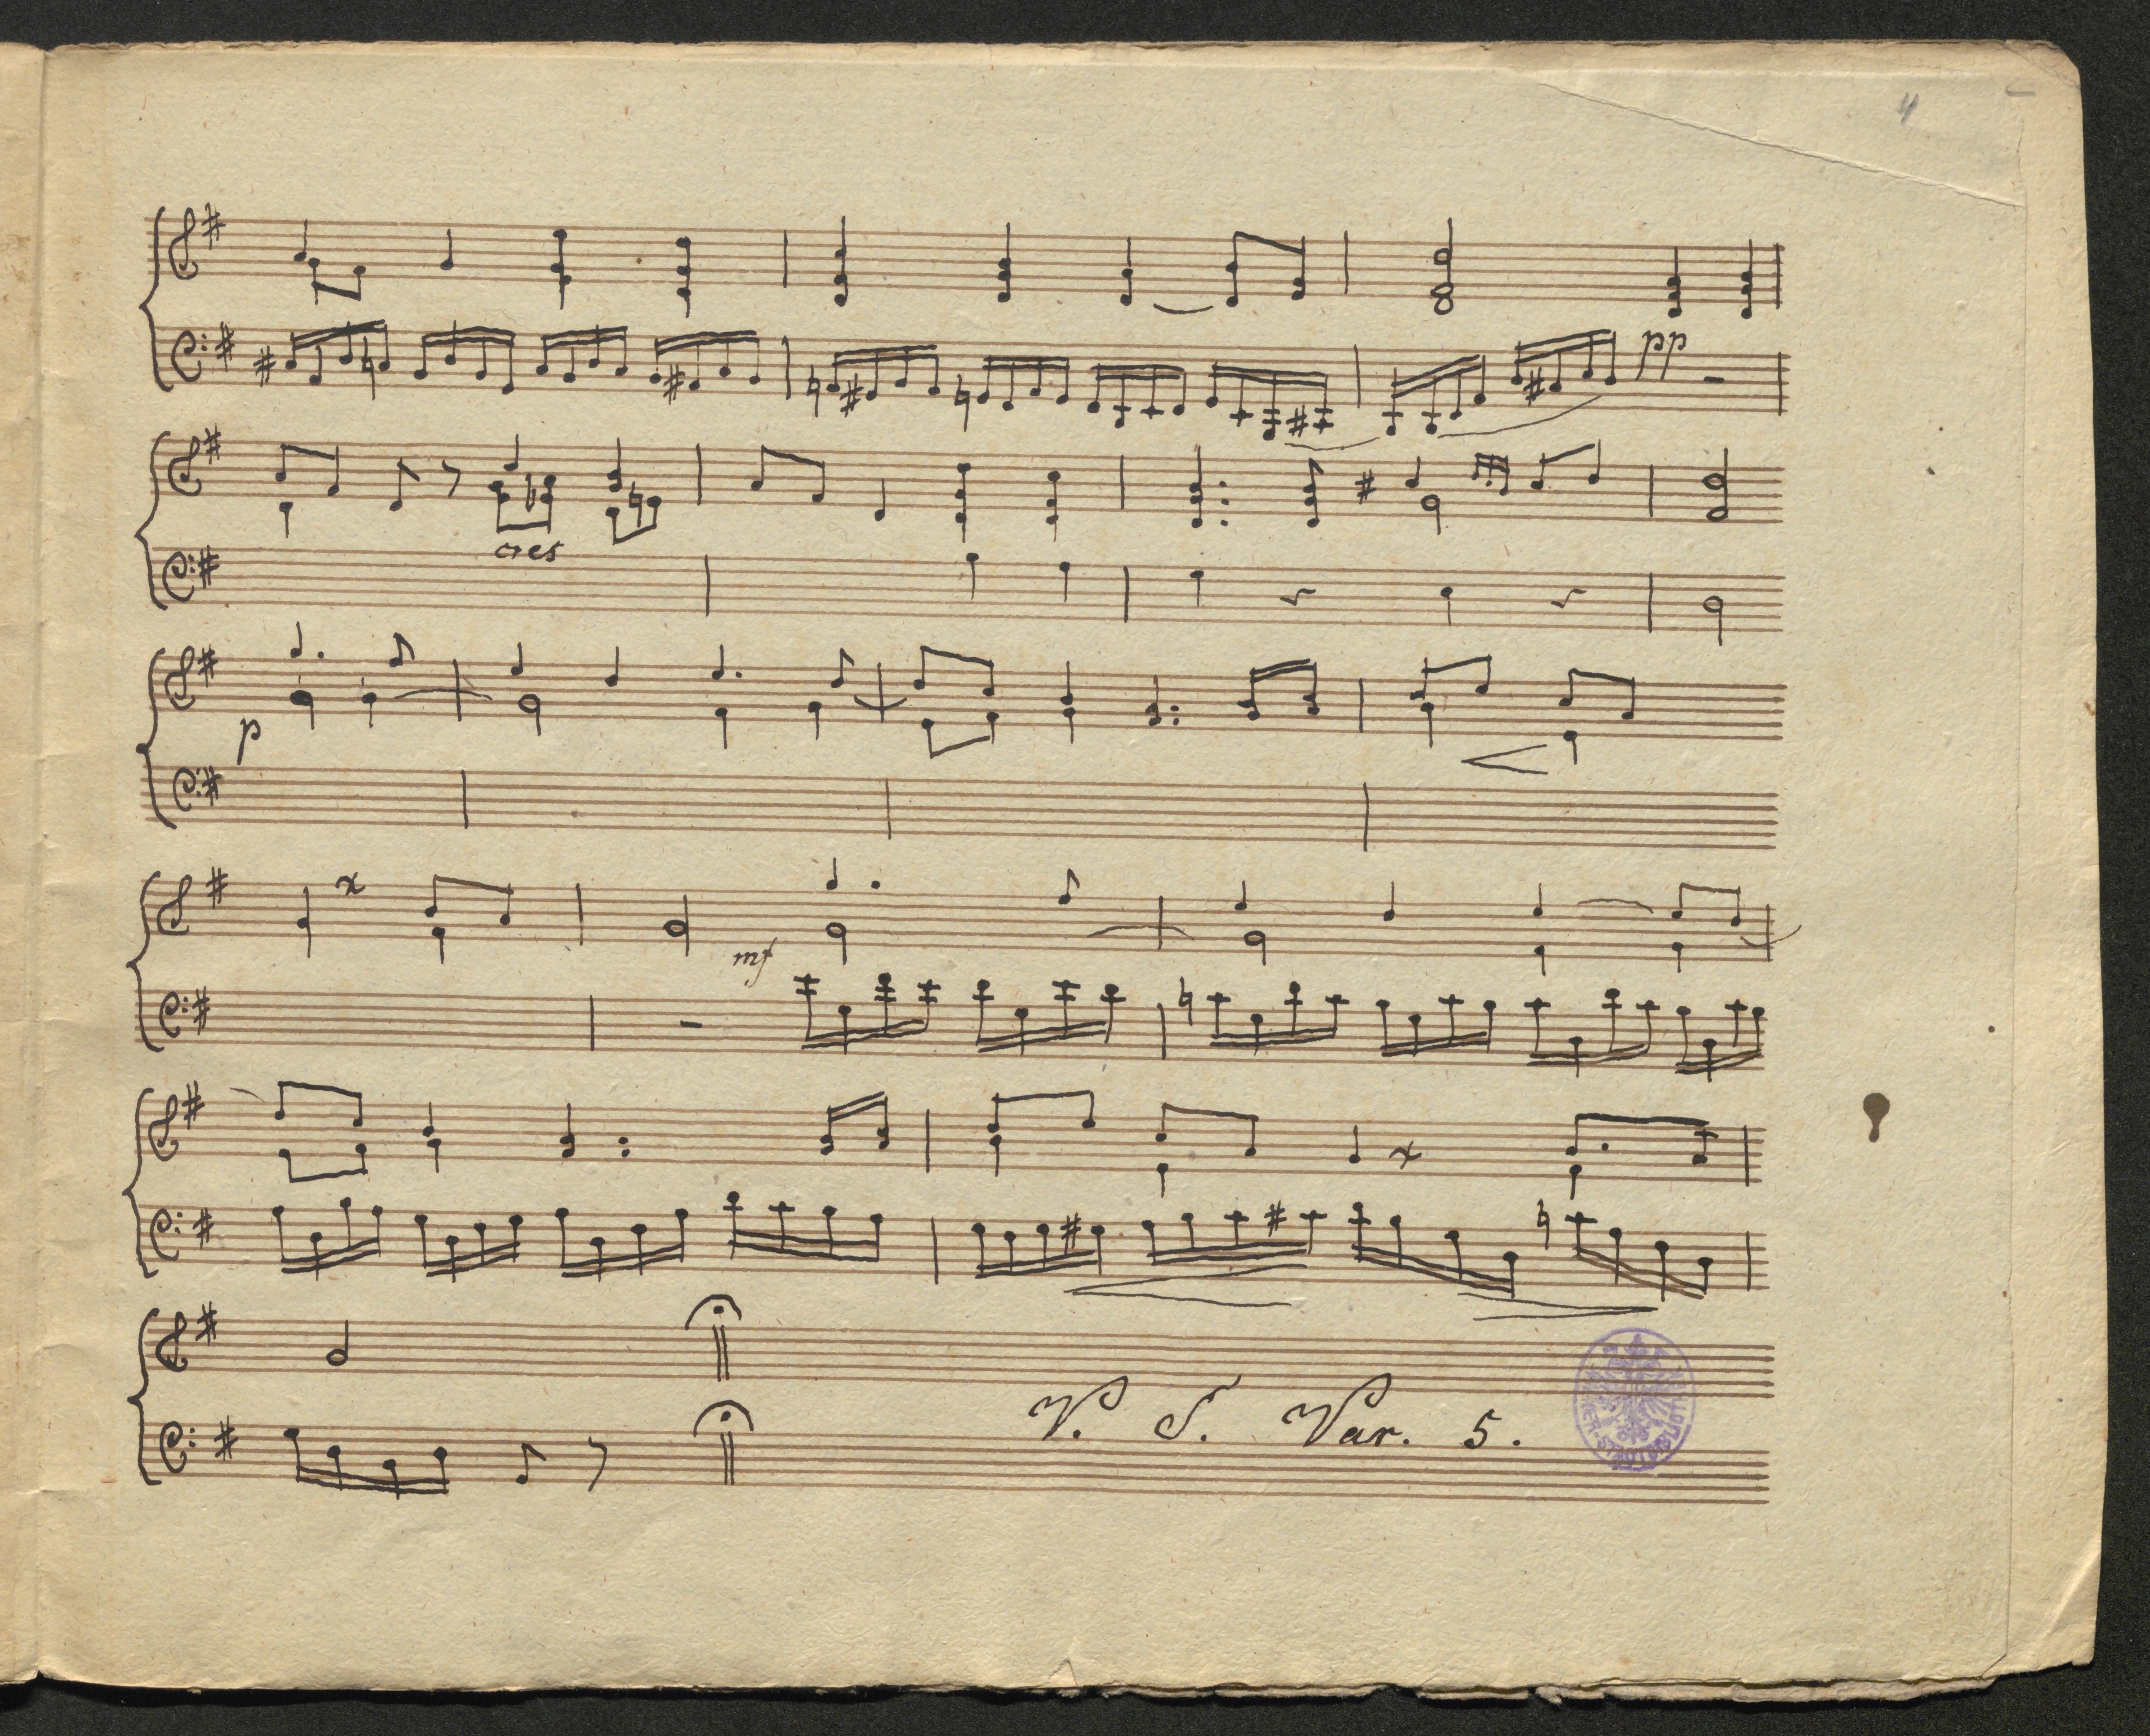 4
pp
cres
p
mf
V. S. Var. 5.